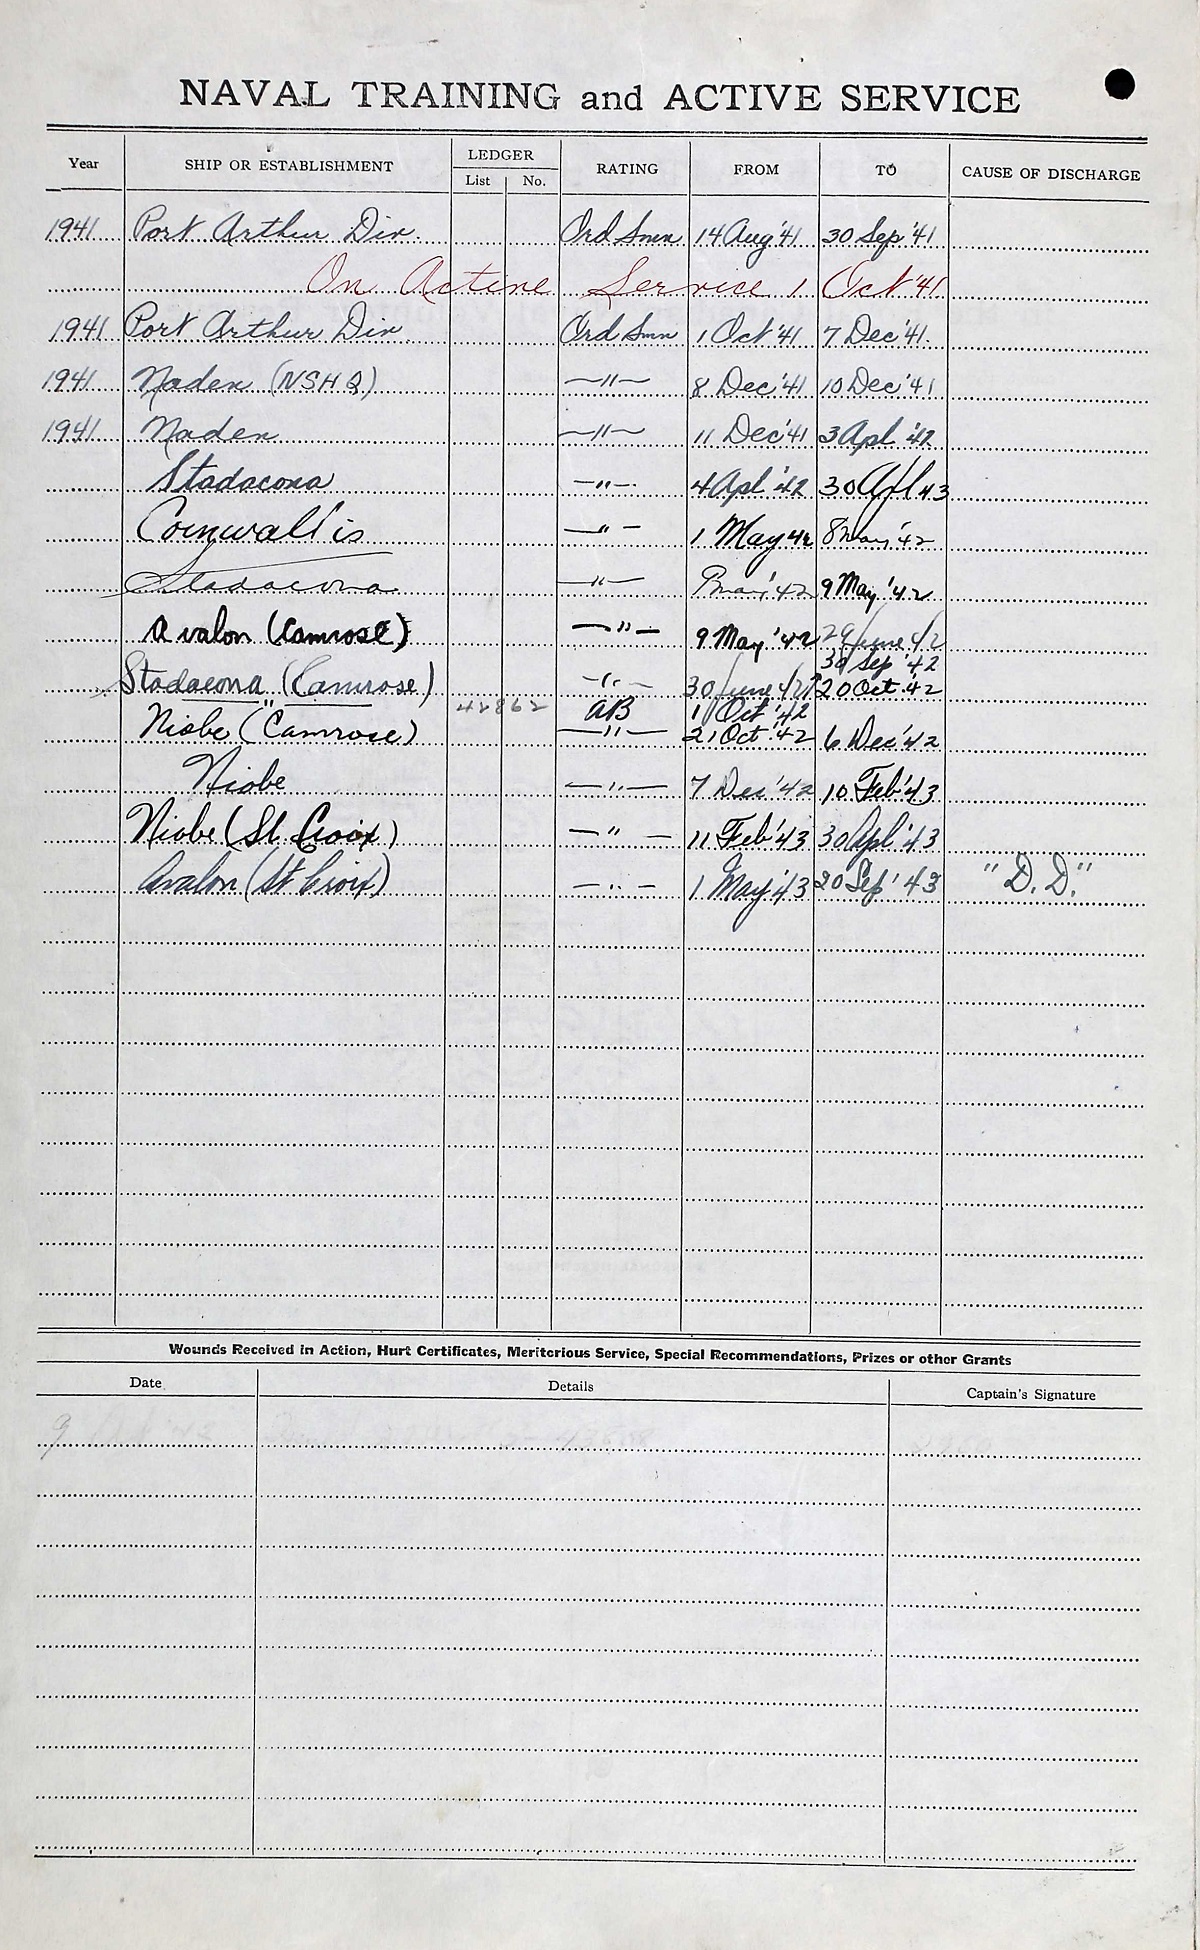 NAVAL TRAINING and ACTIVE SERVICE
Year SHIP OR ESTABLISHMENT LEDGER List No. RATING FROM TO CAUSE OF DISCHARGE
1941 Port Arthur Div. Ord Smn 14 Aug '41 30 Sep '41
On Active Service 1 Oct '41
1941 Port Arthur Div. Ord Smn 1 Oct '41 7 Dec '41.
1941 Naden (NSHQ) —"— 8 Dec '41 10 Dec '41
1941 Naden —"— 11 Dec '41 3 Apl '42
Stadacona —"— 4 Apl '42 30 Apl 43
Cornwallis —"— 1 May 42 8 May '42
Stadacona —"— May '42 9 May '42
Avalon (Camrose) —"— 9 May '42 29 June 42
30 Sep '42
Stadacona (Camrose) —"— 30 June 42 20 Oct '42
" 42862 AB 1 Oct '42
Niobe (Camrose) —"— 21 Oct '42 6 Dec '42
Niobe —"— 7 Dec '42 10 Feb '43
Niobe (St. Croix) —"— 11 Feb '43 30 Apl '43
Avalon (St Croix) —"— 1 May '43 20 Sep '43 "D.D."
Wounds Received in Action, Hurt Certificates, Meritorious Service, Special Recommendations, Prizes or other Grants
Date Details Captain's Signature
9